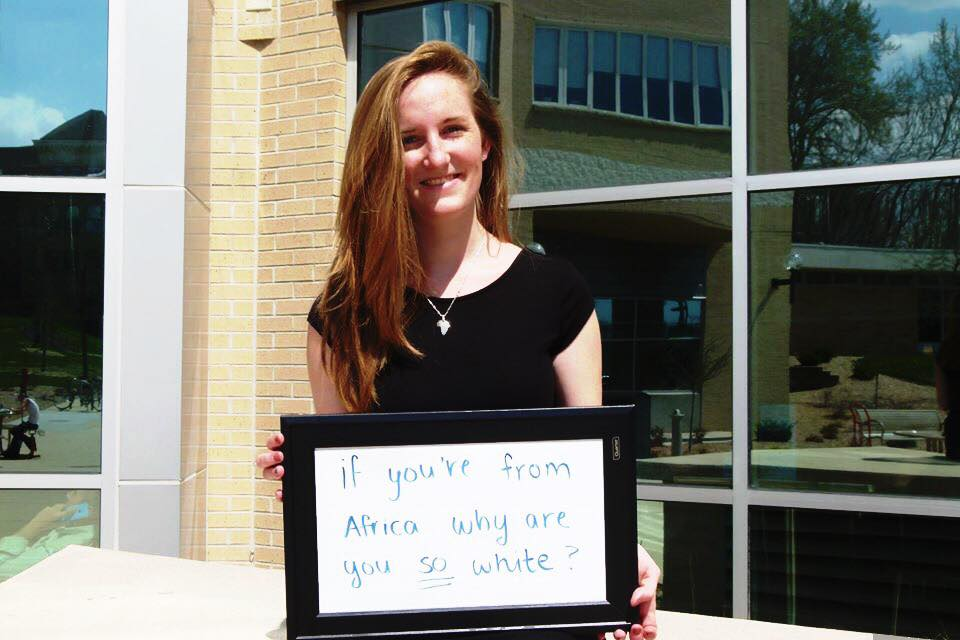 if you're from
Africa why are
you so white?